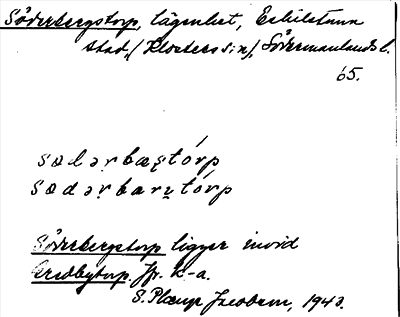 Söderbergstorp, lägenhet, Eskilstuna
stad, (Klosters sn), Södermanlands l.
65.
sødərbæʂtórp
sødəṛbarʂtórp
Söderbergstorp ligger invid
Gredbytorp. Jfr. k-a.
S. Plæup Jacobsen, 1943.